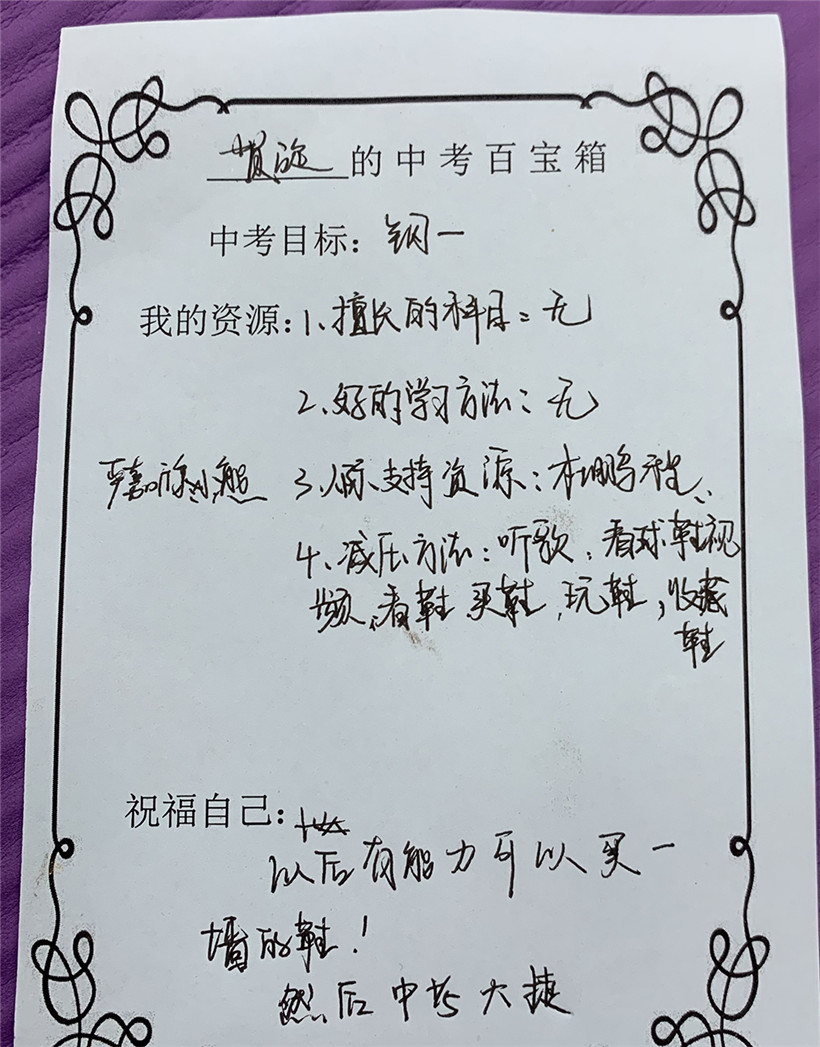 的中考百宝箱
中考目标：钢一
我的资源：1、擅长的科目：无
2、好的学习方法：无
3、人际支持资源：
4、减压方法：听歌、看球鞋视
频、看鞋、买鞋、玩鞋，收藏
鞋
祝福自己：
以后有能力可以买一
墙的鞋！
然后中考大捷